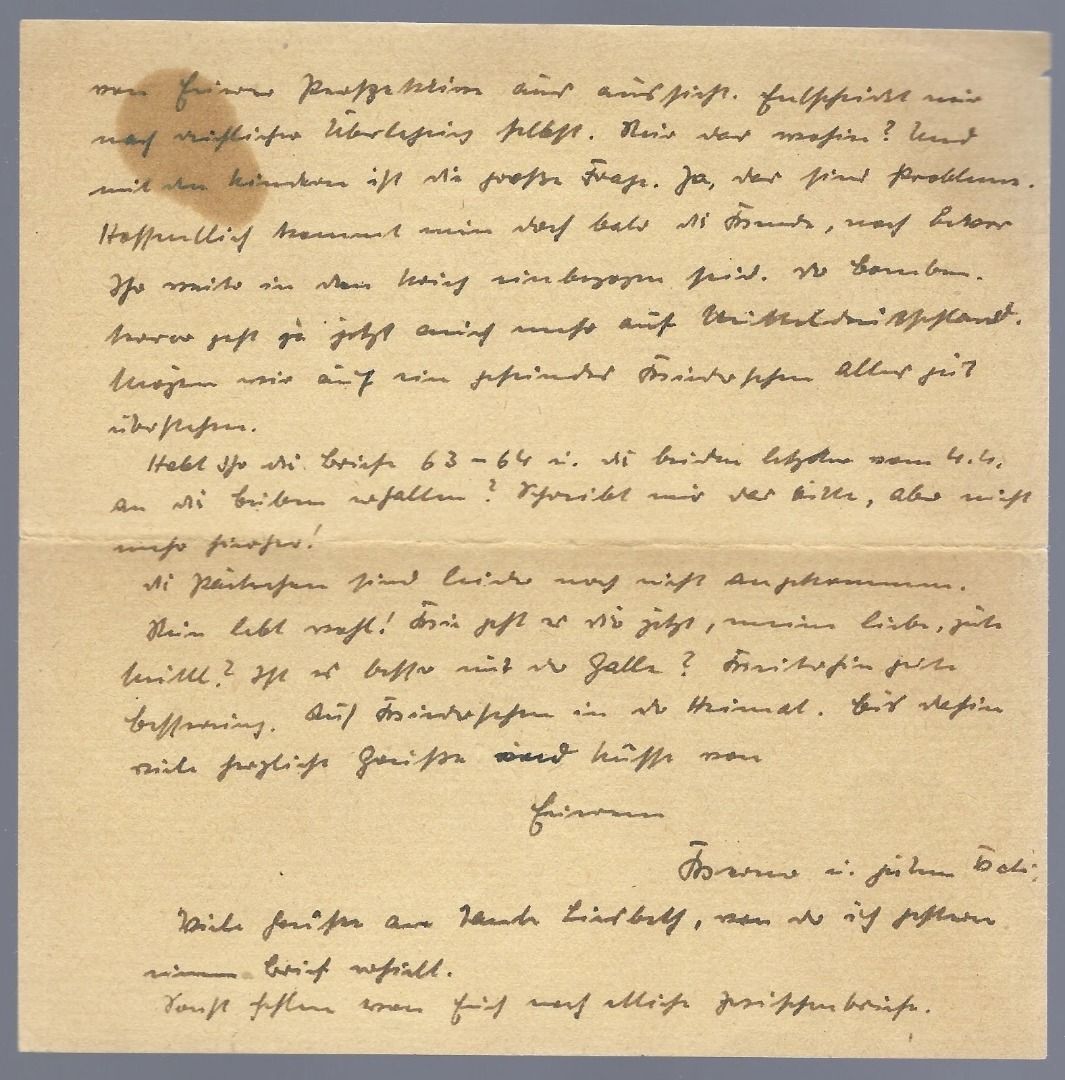 von Eurer Perspektive aus aussieht. Entscheidet nur
nach reichlicher Überlegung selbst. Nur das wohin? Und
mit den Kindern ist die große Frage. Ja, das sind Probleme.
Hoffentlich kommt nun doch bald die Stunde, noch bevor
Ihr weiter in den Krieg einbezogen seid. Der Bomben-
terror geht ja jetzt auch mehr auf Mitteldeutschland.
Mögen wir auf ein gesundes Wiedersehen alles gut
überstehen.
Habt Ihr die Briefe 63-64 u. die beiden letzten vom 4.4.
an die Buben erhalten? Schreibt mir das bitte, aber nicht
mehr hierher!
Die Päckchen sind leider noch nicht angekommen.
Nun lebt wohl! Wie geht es Dir jetzt, meine liebe, gute
Mutti? Ist es besser mit der Galle? Weiterhin gute
Besserung. Auf Wiedersehen in der Heimat. Bis dahin
viele herzliche Grüße und Küsse von
Eurem
Werner u. gutem Vati.
Viele Grüße an Tante Liesbeth, von der ich gestern
einen Brief erhielt.
Sonst fehlen von Euch noch etliche Zwischenbriefe.